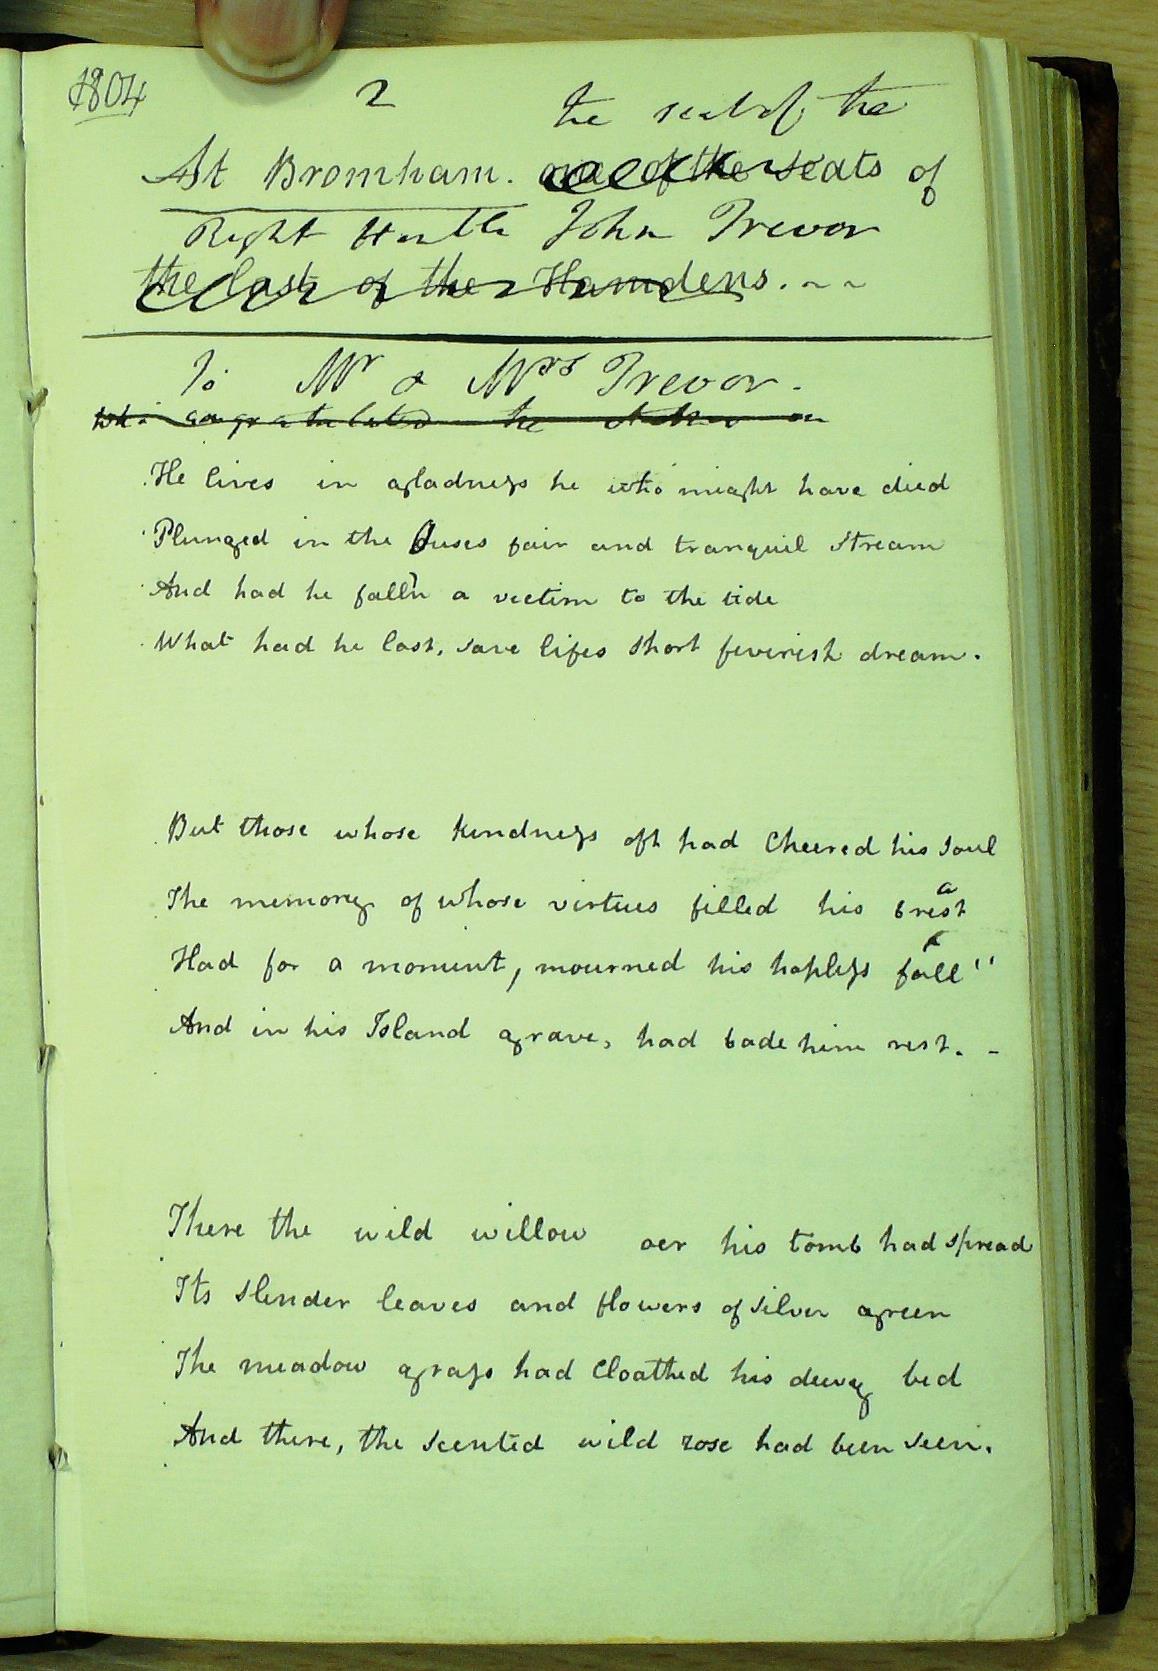 1804
2
the seat of the
At Bromham. one of the seats of
Right Honble John Trevor
the last of the Hamdens. ~ ~
To Mr & Mrs Trevor.
Who congratulated the Author on
He lives in gladness he who might have died
Plunged in the Ouses fair and tranquil stream
And had he fall'n a victim to the tide
What had he lost, save lifes short feverish dream.
But those whose kindness oft had Cheered his soul
The memory of whose virtues filled his breast
Had for a moment, mourned his hapless fall"
And in his Island grave, had bade him rest. -
There the wild willow oer his tomb had spread
Its slender leaves and flowers of silver green
The meadow grass had Cloathed his dewy bed
And there, the scented wild rose had been seen.